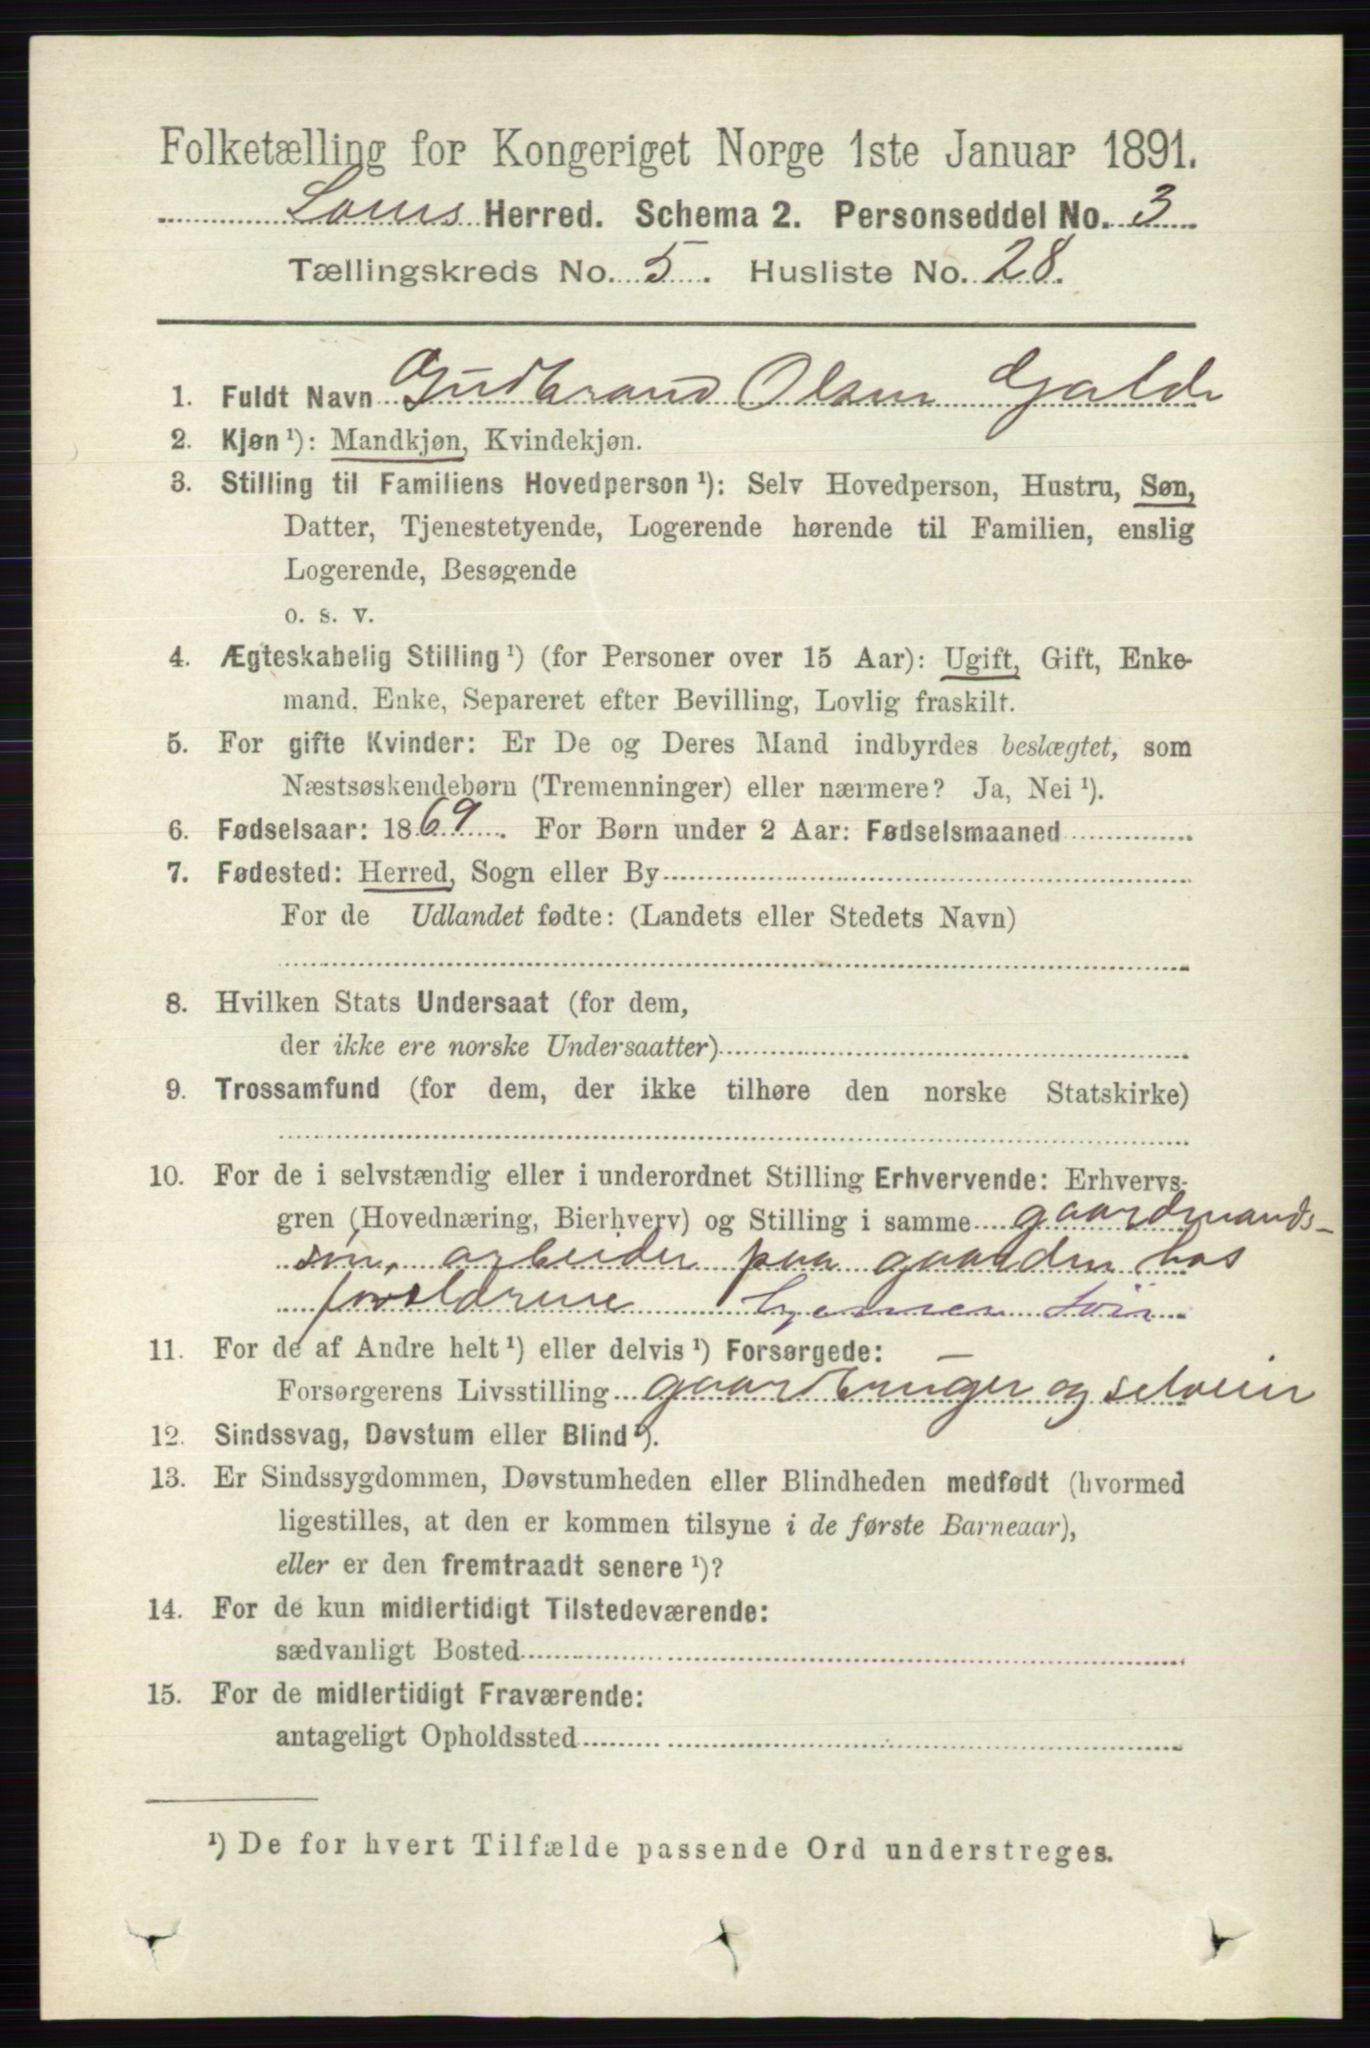 Folketælling for Kongeriget Norge 1ste Januar 1891.
Loms Herred. Schema 2. Personseddel No. 3
Tællingskreds No. 5. Husliste No. 28.
1. Fuldt Navn Gudbrand Olsen Galde
2. Kjøn ¹): Mandkjøn, Kvindekjøn.
3. Stilling til Familiens Hovedperson ¹): Selv Hovedperson, Hustru, Søn,
Datter, Tjenestetyende, Logerende hørende til Familien, enslig
Logerende, Besøgende
o. s. v.
4. Ægteskabelig Stilling ¹) (for Personer over 15 Aar): Ugift, Gift, Enke-
mand, Enke, Separeret efter Bevilling, Lovlig fraskilt.
5. For gifte Kvinder: Er De og Deres Mand indbyrdes beslægtet, som
Næstsøskendebørn (Tremenninger) eller nærmere? Ja, Nei ¹).
6. Fødselsaar: 1869. For Børn under 2 Aar: Fødselsmaaned
7. Fødested: Herred, Sogn eller By
For de Udlandet fødte: (Landets eller Stedets Navn)
8. Hvilken Stats Undersaat (for dem,
der ikke ere norske Undersaatter)
9. Trossamfund (for dem, der ikke tilhøre den norske Statskirke)
10. For de i selvstændig eller i underordnet Stilling Erhvervende: Erhvervs-
gren (Hovednæring, Bierhverv) og Stilling i samme gaardmands-
søn, arbeider paa gaarden hos
forældrene
11. For de af Andre helt ¹) eller delvis ¹) Forsørgede:
Forsørgerens Livsstilling gaardbruger og selveier
12. Sindssvag, Døvstum eller Blind ¹).
13. Er Sindssygdommen, Døvstumheden eller Blindheden medfødt (hvormed
ligestilles, at den er kommen tilsyne i de første Barneaar),
eller er den fremtraadt senere ¹)?
14. For de kun midlertidigt Tilstedeværende:
sædvanligt Bosted
15. For de midlertidigt Fraværende:
antageligt Opholdssted
¹) De for hvert Tilfælde passende Ord understreges.